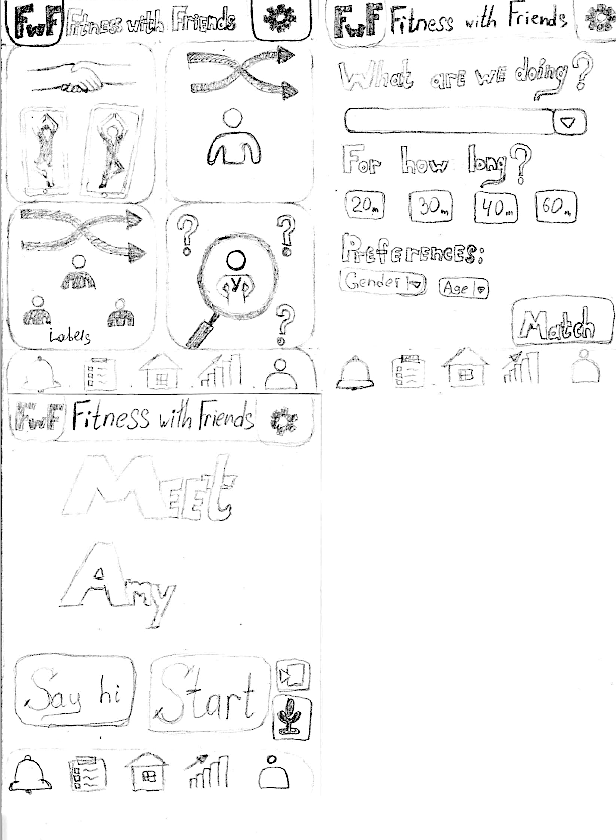 FwF Fitness with Friends
? ?
Labels ?
FwF Fitness with Friends
What are we doing?
For how long?
20m 30m 40m 60m
Preferences:
Gender Age
Match
FwF Fitness with Friends
Meet
Amy
Say hi Start